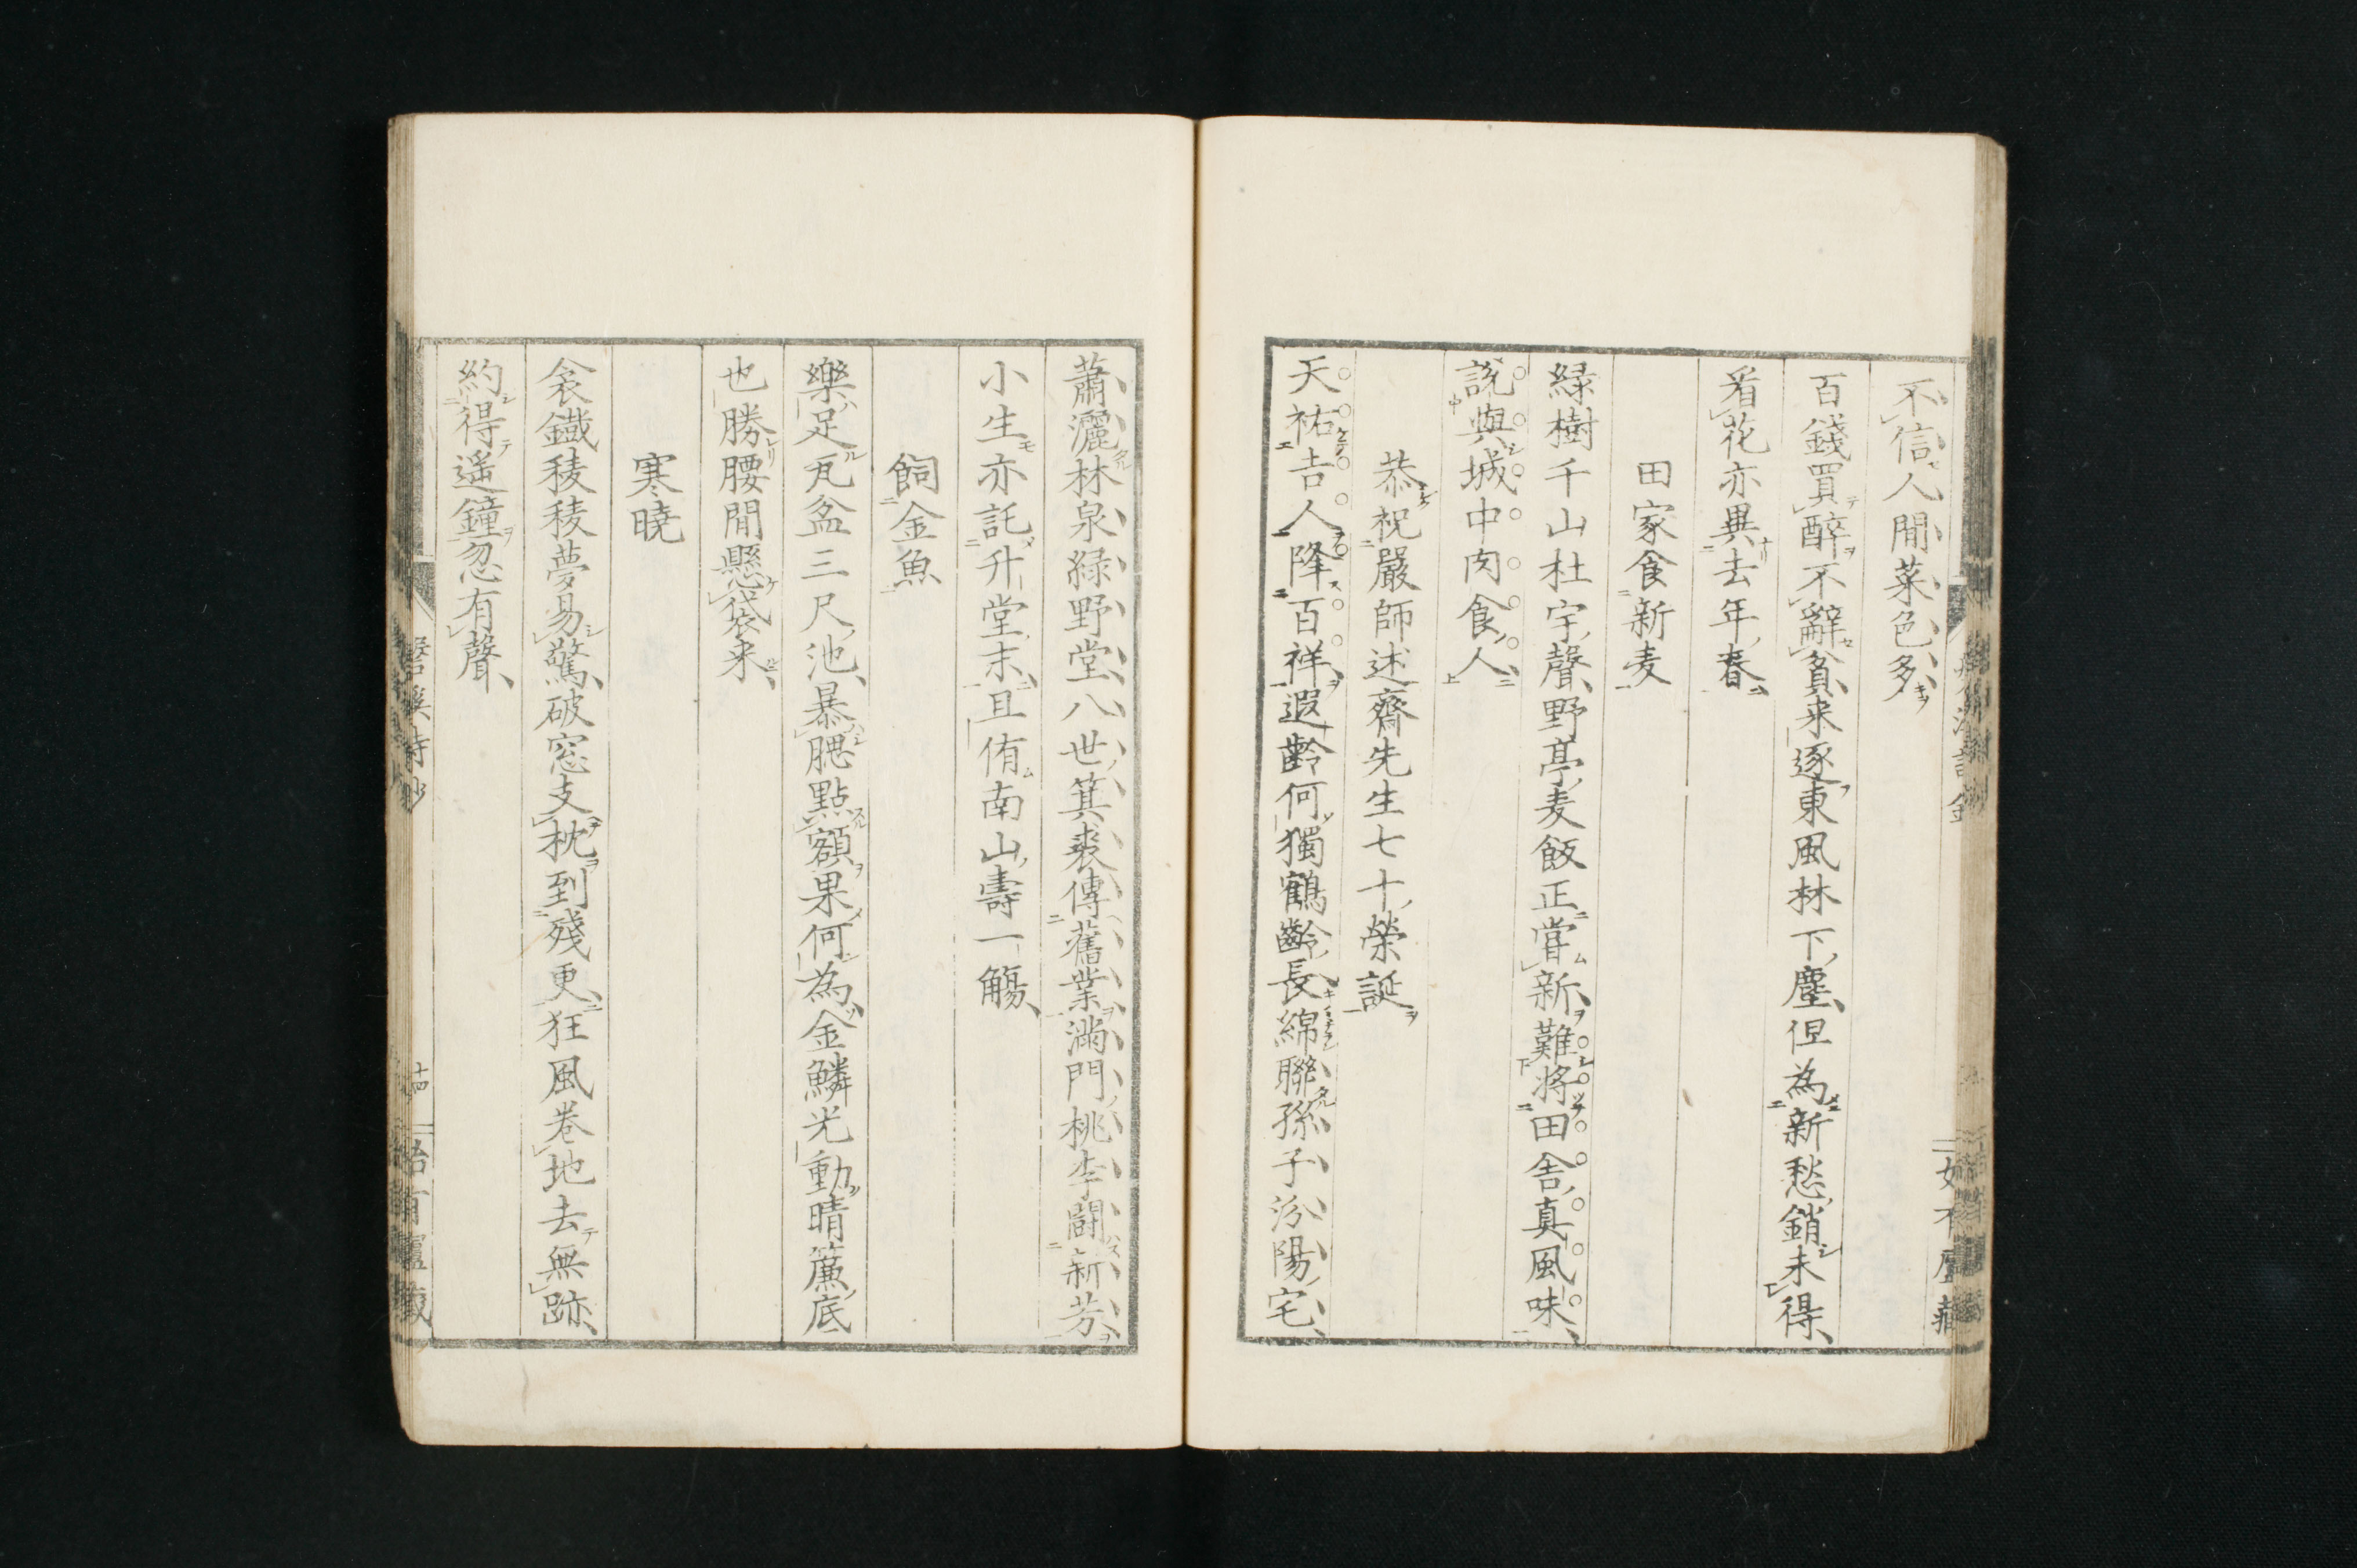 不信人間菜色多
百錢買醉不辭貧来逐東風林下塵但為新愁銷未得
看花亦異去年春
田家食新麦
緑樹千山杜宇聲野亭麦飯正甞新難將田舎真風味
説與城中肉食人
恭祝嚴師述齋先生七十榮誕
天祐吉人降百祥遐齡何獨鶴齡長綿聯孫子汾陽宅
蕭灑林泉緑野堂八世箕裘傳舊業滿門桃李鬪新芳
小生亦託升堂末且侑南山壽一觴
飼金魚
樂足瓦盆三尺池暴腮點額果何為金鱗光動晴簾底
也勝腰間懸袋来
寒暁
衾鐵稜稜夢易驚破窓支枕到殘更狂風巻地去無跡
約得遥鐘忽有聲
十四